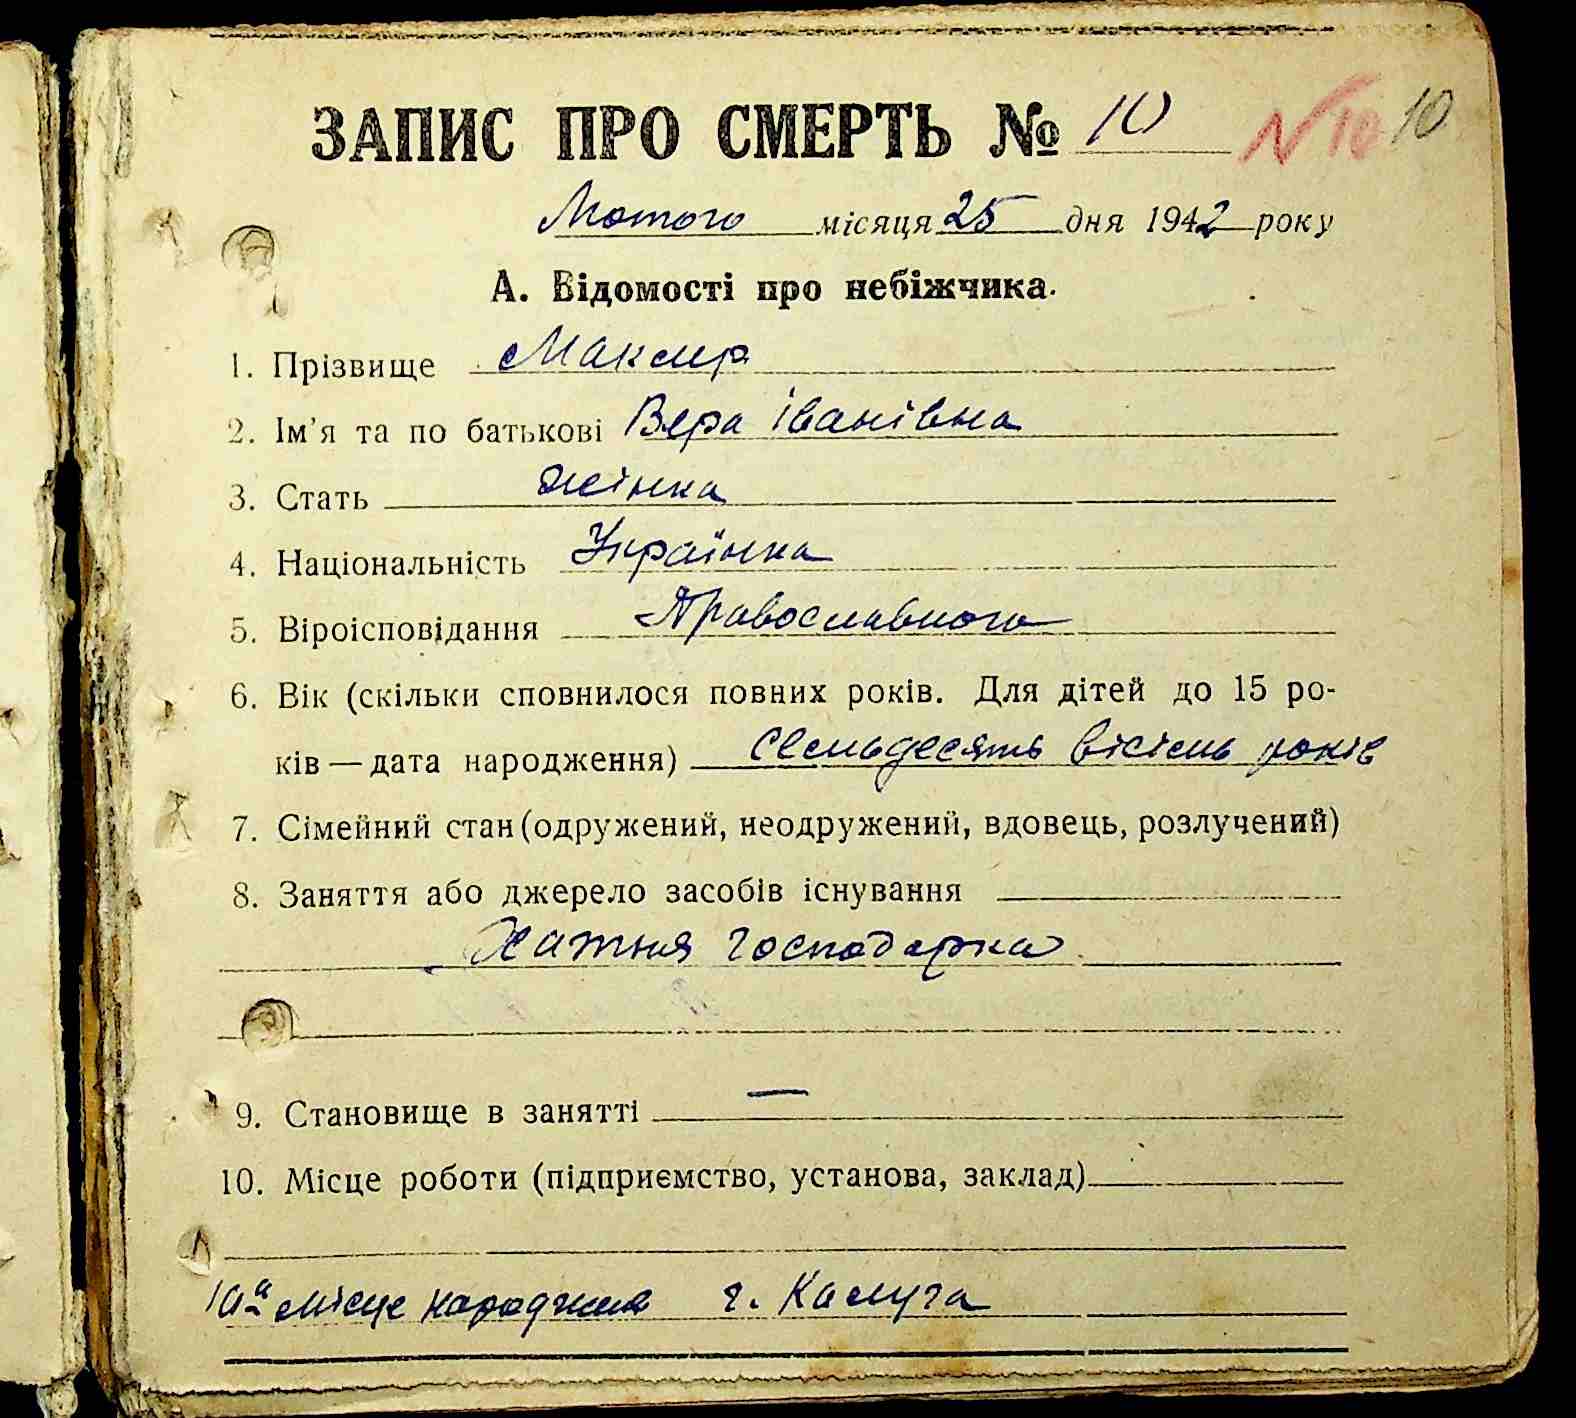 ЗАПИС ПРО СМЕРТЬ № 10 N 10 10
Лютого місяця 25 дня 1942 року
А. Відомості про небіжчика.
1. Прізвище Маклер
2. Ім'я та по батькові Вера Іванівна
3. Стать жінка
4. Національність Українка
5. Віроісповідання Православного
6. Вік (скільки сповнилося повних років. Для дітей до 15 ро-
ків — дата народження) семьдесять вісімь років
7. Сімейний стан (одружений, неодружений, вдовець, розлучений)
8. Заняття або джерело засобів існування
Хатня господарка
9. Становище в занятті —
10. Місце роботи (підприємство, установа, заклад)
10а місце народження г. Калуга